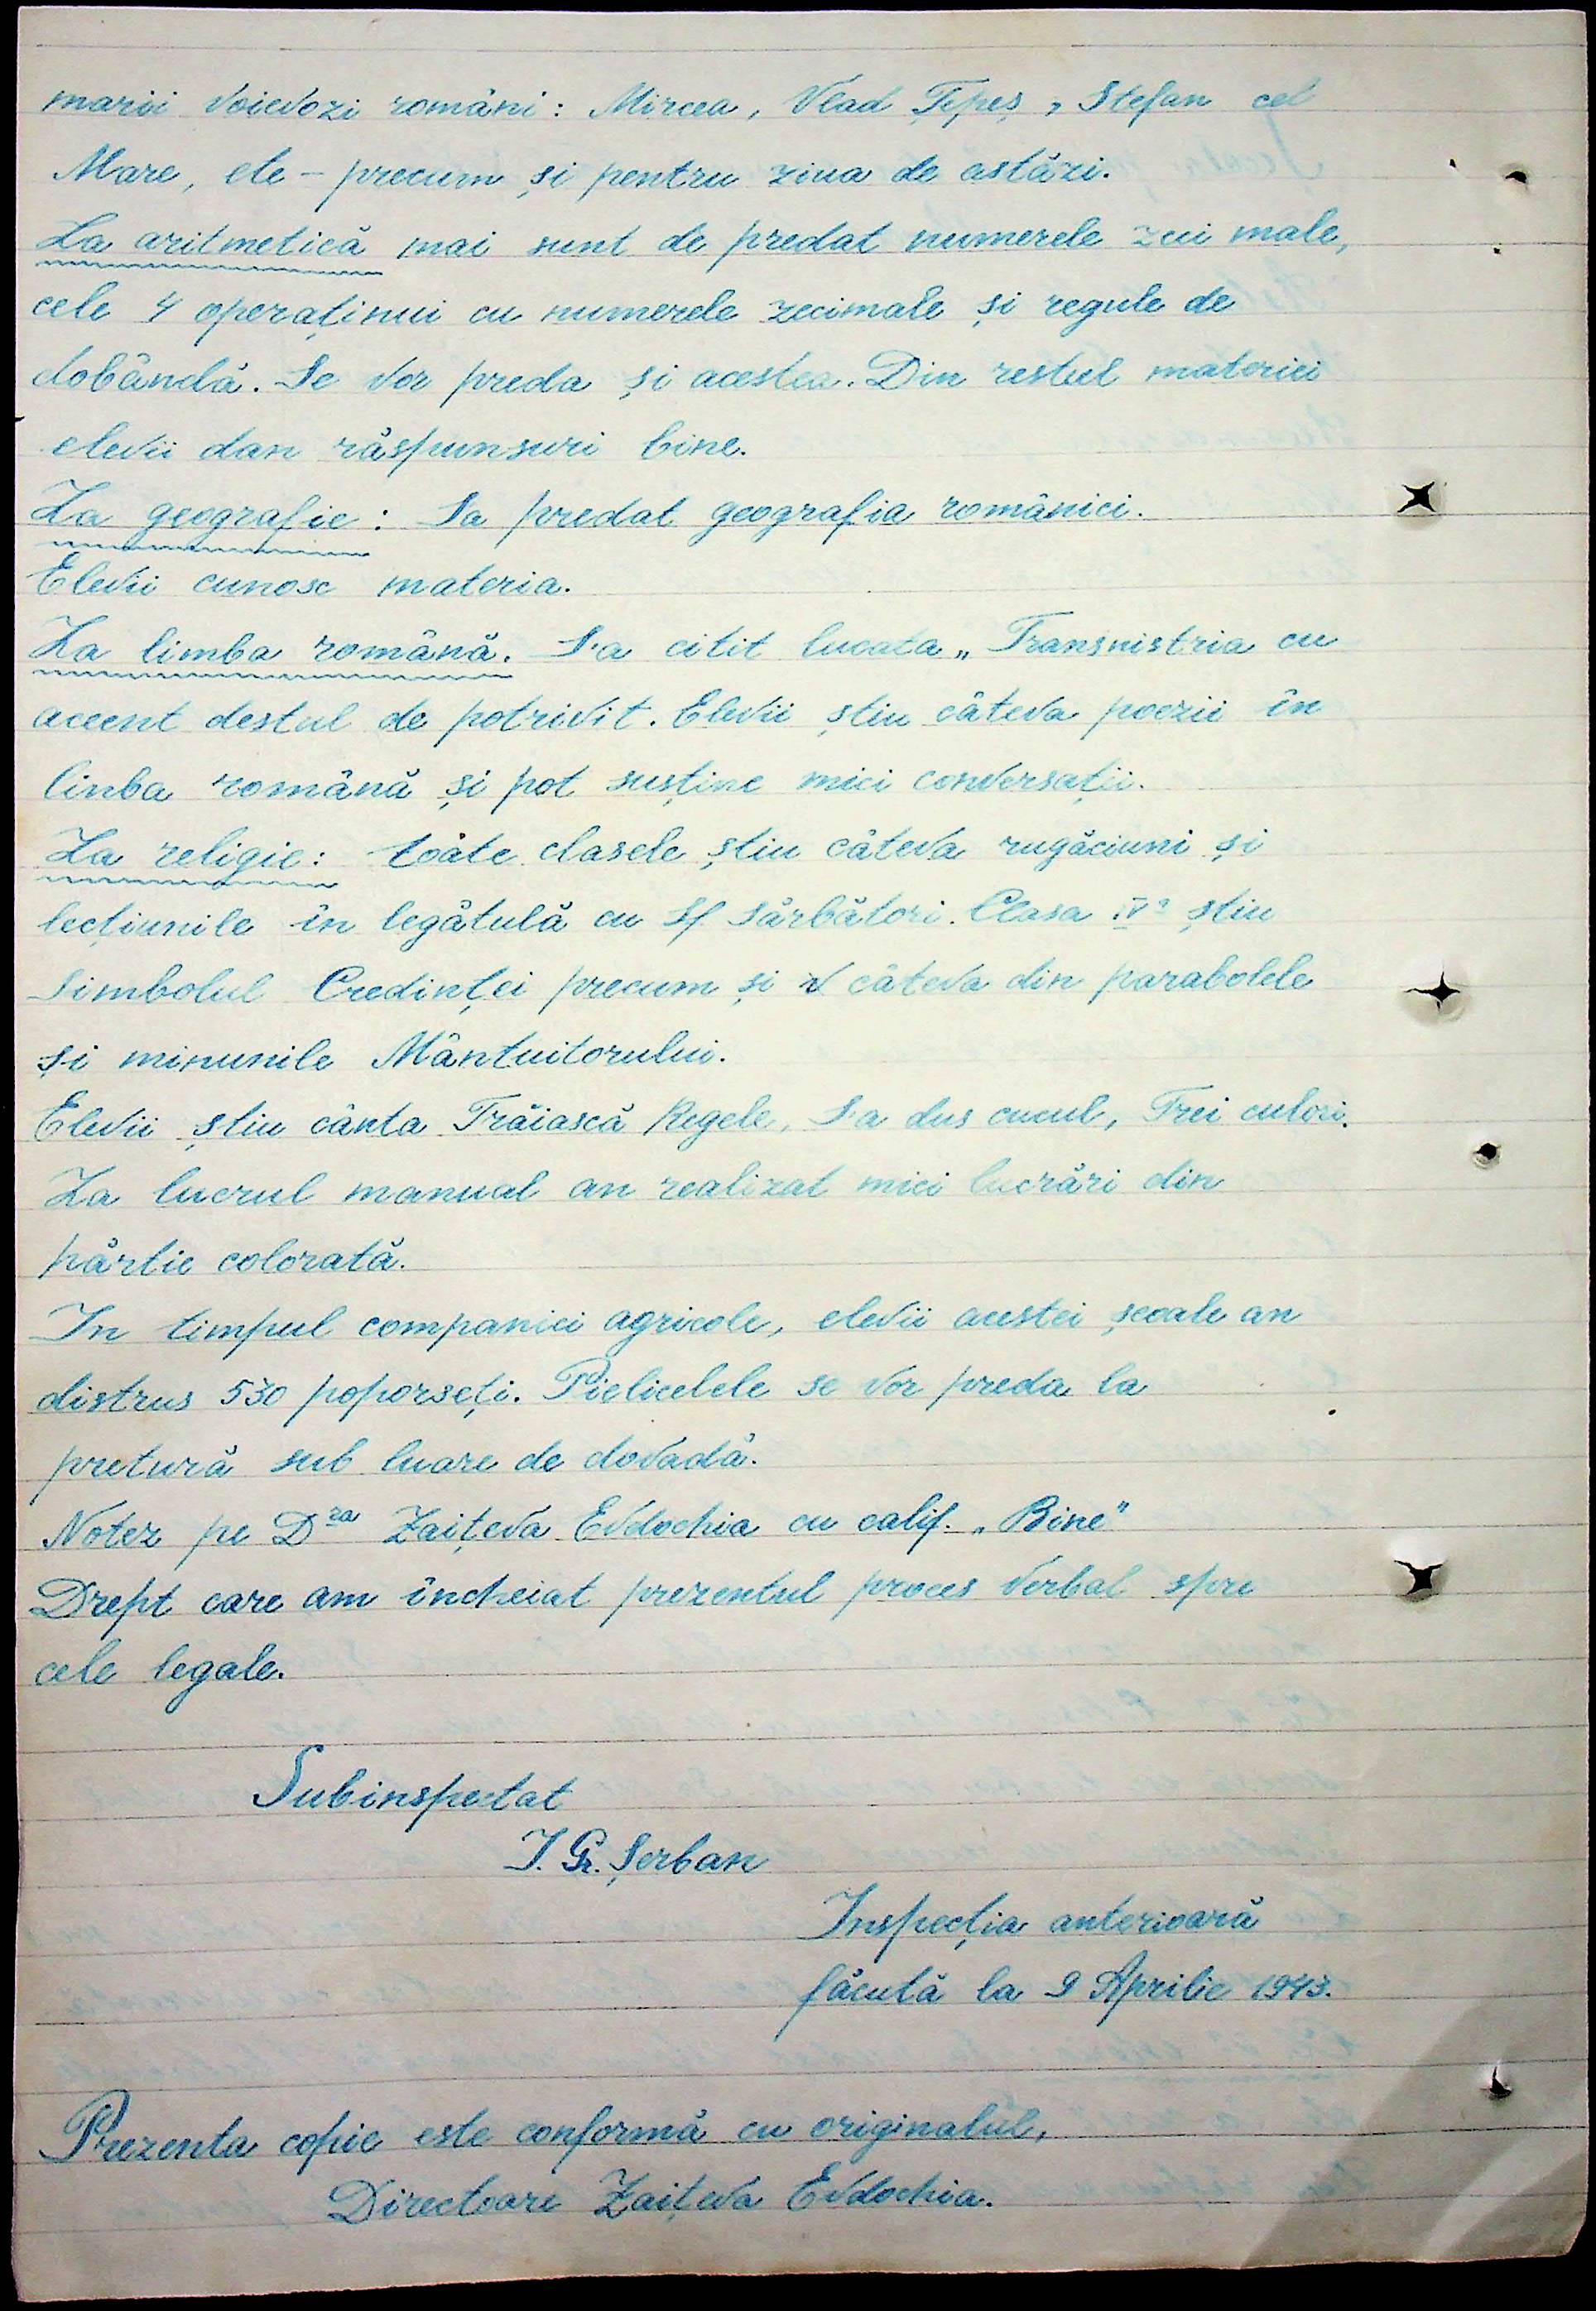 marii Voievozi români: Mircea, Vlad Țepeș, Stefan cel
Mare, etc - precum și pentru ziua de astăzi.
La aritmetică mai sunt de predat numerele zeci male,
cele 4 operațiuni cu numerele zecimale și regule de
dobândă. Se vor preda și acestea. Din restul materiei
elevii dan răspunsuri bine.
La geografie: Sa predat geografia româniei.
Elevii cunosc materia.
La limba română. S'a citit lucata „Transnistria cu
accent destul de potrivit. Elevii știu câteva poezii în
linba română și pot susține mici conversații.
La religie: toate clasele știu câteva rugăciuni și
lecțiunile în legătulă cu Sf. Sărbători. Clasa IVa știu
Simbolul Credinței precum și câteva din parabolele
și minunile Mântuitorului.
Elevii știu cânta Trăiască Regele, S'a dus cucul, Trei culori.
La lucrul manual an realizat mici lucrări din
hârtie colorată.
In timpul companiei agricole, elevii acestei școale an
distrus 530 poporseți. Pielicelele se vor preda la
pretură sub luare de dovadă.
Notez pe Dra Zaițeva Evdochia cu calif. „Bine"
Drept care am încheiat prezentul proces verbal spre
cele legale.
Subinspectat
I. Gr. Șerban
Inspecția anterioară
făcută la 9 Aprilie 1943.
Prezenta copie este conformă cu originalul,
Directoare Zaițeva Evdochia.